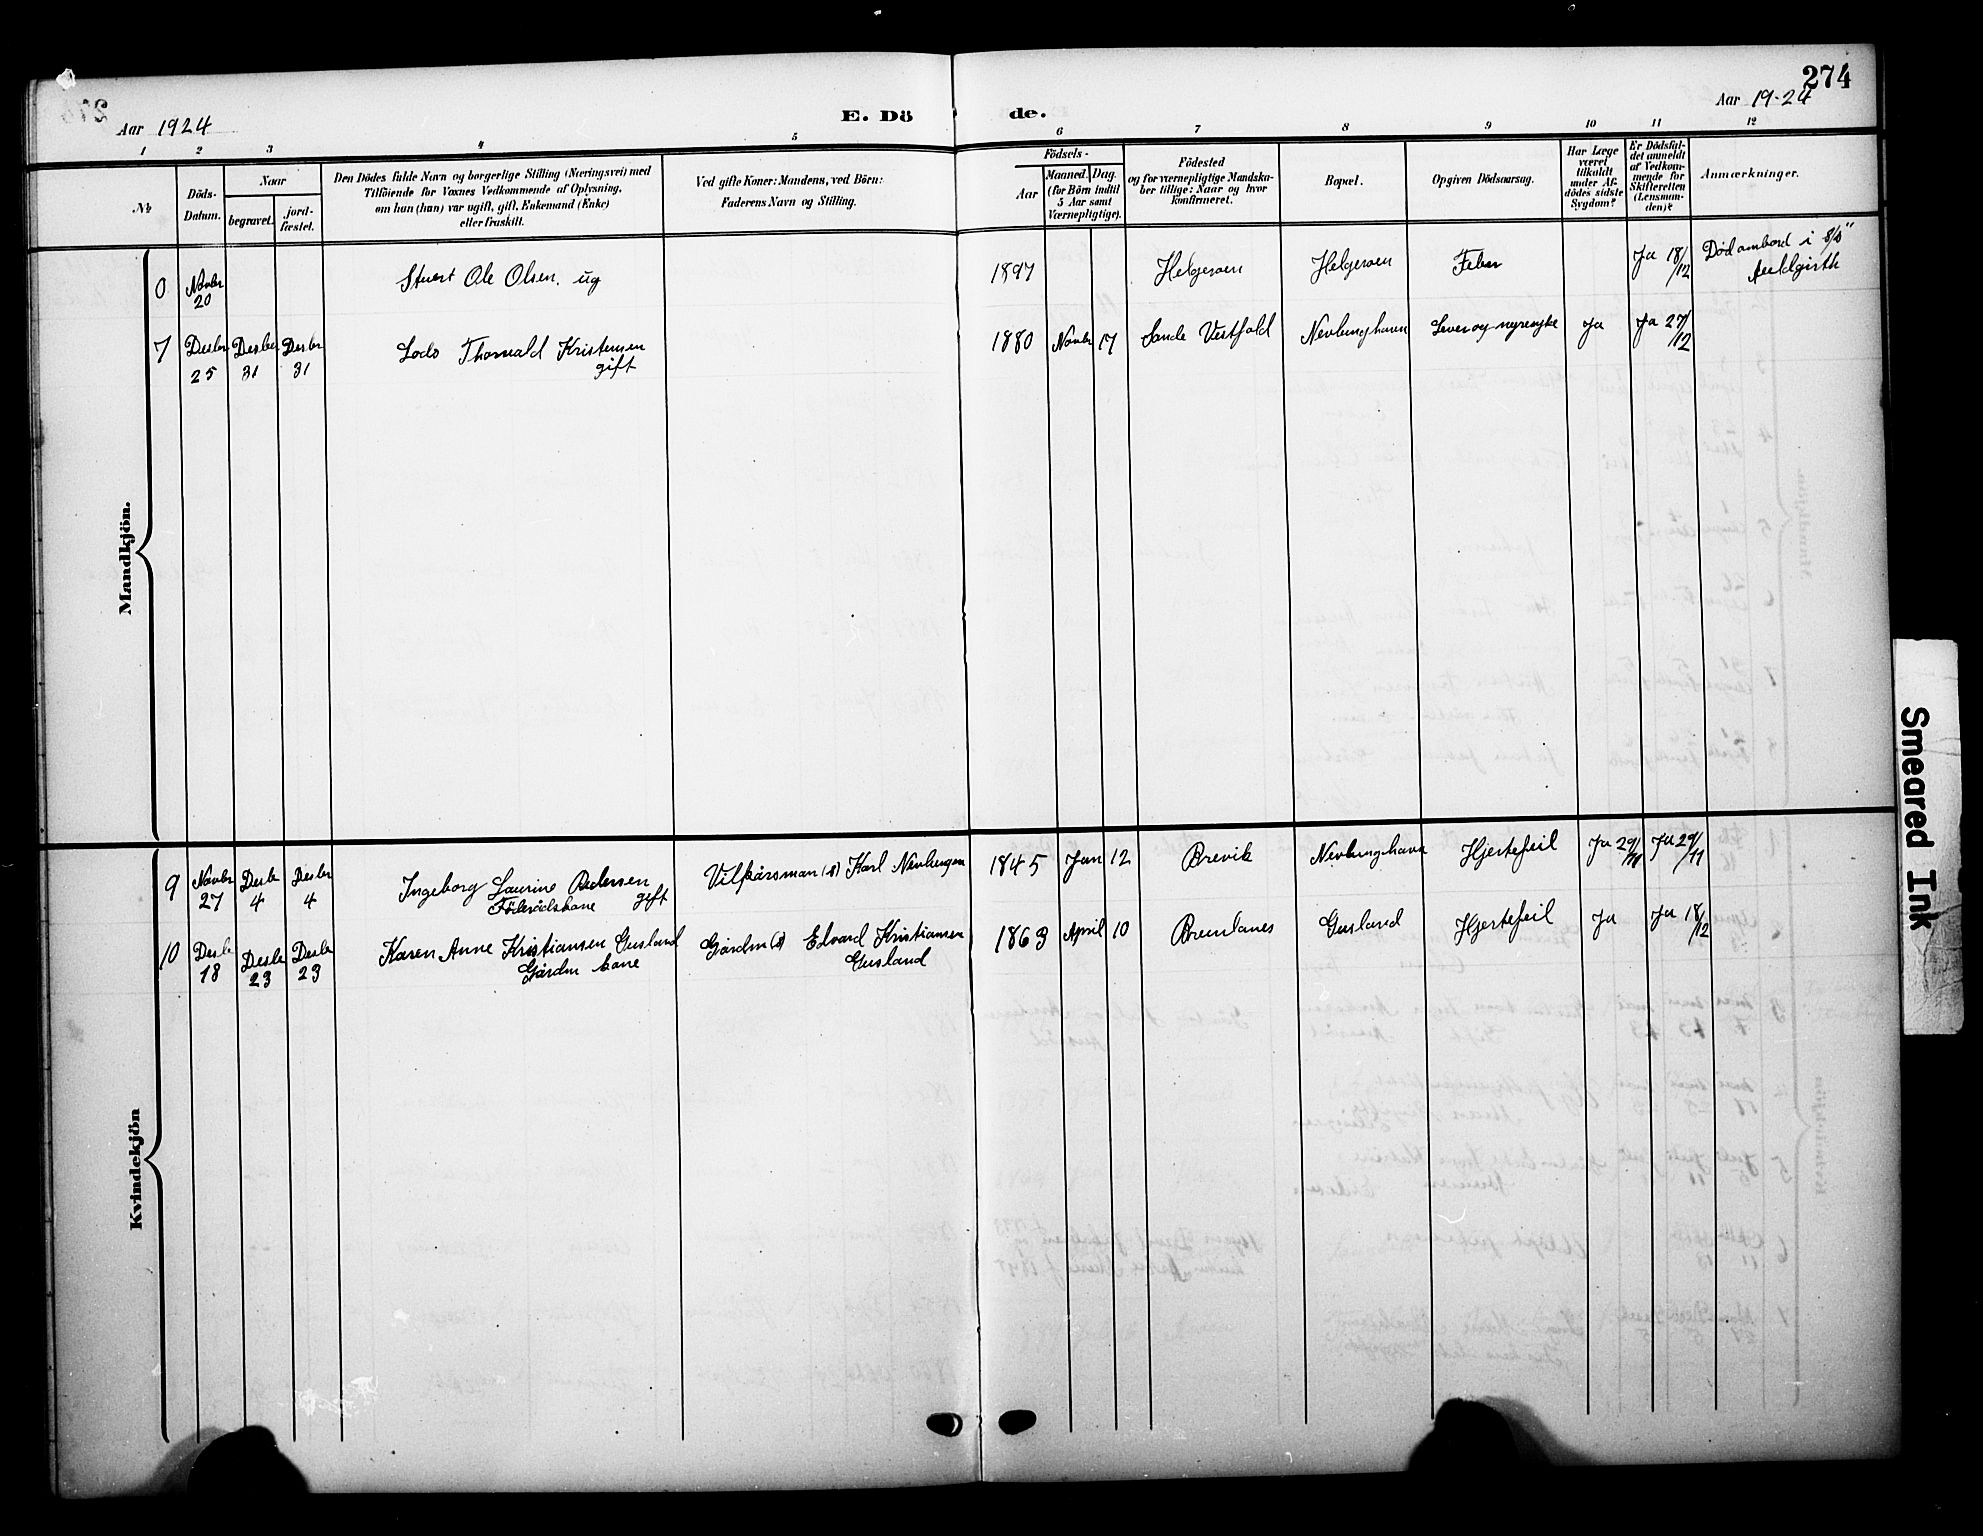 274
Aar 1924
E. Dö
de.
Aar 19-24
1 2 3 4 5 6 7 8 9 10 11 12
№
Döds-
Datum.
Naar
begravet.
jord-
fæstet.
Den Dödes fulde Navn og borgerlige Stilling (Næringsvei) med
Tilföiende for Voxnes Vedkommende af Oplysning,
om han (hun) var ugift, gift, Enkemand (Enke)
eller fraskilt.
Ved gifte Koner: Mandens, ved Börn:
Faderens Navn og Stilling.
Födsels-
Aar
Maaned. Dag.
(for Börn indtil
5 Aar samt
Værnepligtige).
Födested
og for værnepligtige Mandska-
ber tillige: Naar og hvor
konfirmeret.
Bopæl.
Opgiven Dödsaarsag.
Har Læge
været
tilkaldt
under Af-
dödes sidste
Sygdom?
Er Dödsfal-
det anmeldt
af Vedkom-
mende for
Skifteretten
(Lensman-
den)?
Anmærkninger.
Mandkjön.
0 Novbr 20 Stuert Ole Olsen. ug 1897 Helgeroen Helgeroen Feber Ja 18/12 Död ombord i S/S"
Auldgirth
7 Desbr 25 Desber 31 Desbr 31 Lods Thorvald Kristensen
gift
1880 Novbr 17 Sande Vestfold Nevlunghavn Lever og nyresyke Ja Ja 27/12
Kvindekjön
9 Novbr 27 Desbr 4 Desbr 4 Ingeborg Laurine Pedersen
Föderådskone gift
Vilkårsman (s) Karl Nevlungen 1845 Jan 12 Brevik Nevlunghavn Hjertefeil Ja 29/11 Ja 29/11
10 Desbr 18 Desbr 23 Desbr 23 Karen Anne Kristiansen Gusland
Gårdm kone
Gårdm (s) Edvard Kristiansen
Gusland
1863 April 10 Brunlanes Gusland Hjertefeil Ja Ja 18/12
Smeared Ink